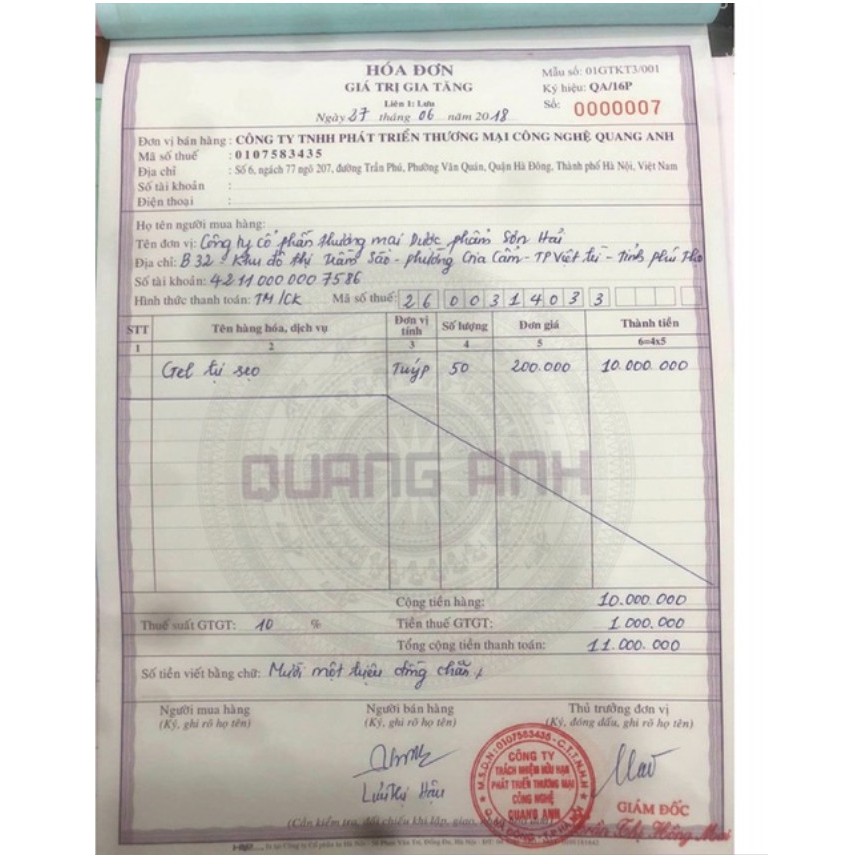 HÓA ĐƠN
GIÁ TRỊ GIA TĂNG
Liên 1: Lưu
Ngày 27 tháng 06 năm 2018
Mẫu số: 01GTKT3/001
Ký hiệu: QA/16P
Số: 0000007
Đơn vị bán hàng : CÔNG TY TNHH PHÁT TRIỂN THƯƠNG MẠI CÔNG NGHỆ QUANG ANH
Mã số thuế : 0107583435
Địa chỉ : Số 6, ngách 77 ngõ 207, đường Trần Phú, Phường Văn Quán, Quận Hà Đông, Thành phố Hà Nội, Việt Nam
Số tài khoản :
Điện thoại :
Họ tên người mua hàng:
Tên đơn vị: Công ty cổ phần thương mại Dược phẩm Sơn Hải
Địa chỉ: B32 - Khu đô thị Trầm Sào - phường Gia Cẩm - TP Việt trì - Tỉnh Phú Thọ
Số tài khoản: 4211000000 7586
Hình thức thanh toán: TM/CK Mã số thuế: 26 00314033
STT Tên hàng hóa, dịch vụ Đơn vị tính Số lượng Đơn giá Thành tiền
1 2 3 4 5 6=4x5
Gel trị sẹo Tuýp 50 200.000 10.000.000
QUANG ANH
Cộng tiền hàng: 10.000.000
Thuế suất GTGT: 10 % Tiền thuế GTGT: 1.000.000
Tổng cộng tiền thanh toán: 11.000.000
Số tiền viết bằng chữ: Mười một triệu đồng chẵn
Người mua hàng
(Ký, ghi rõ họ tên)
Người bán hàng
(Ký, ghi rõ họ tên)
Thủ trưởng đơn vị
(Ký, đóng dấu, ghi rõ họ tên)
Lưu Thị Hậu
M.S.D.N: 0107583435 - C.T.T.N.H.H
CÔNG TY
TRÁCH NHIỆM HỮU HẠN
PHÁT TRIỂN THƯƠNG MẠI
CÔNG NGHỆ
QUANG ANH
GIÁM ĐỐC
Trần Thị Hồng Mai
(Cần kiểm tra, đối chiếu khi lập, giao,